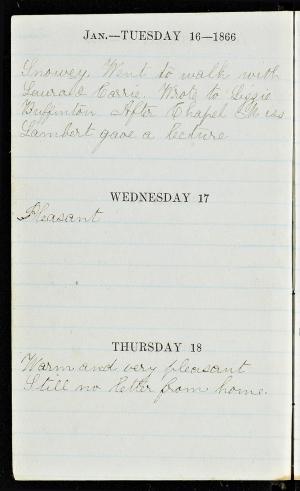 JAN.—TUESDAY 16—1866
Snowey. Went to walk with
Laura & Carrie. Wrote to Lizzie
Buffinton. After Chapel Miss
Lambert gave a lecture
WEDNESDAY 17
Pleasant
THURSDAY 18
Warm and very pleasant
Still no letter from home.